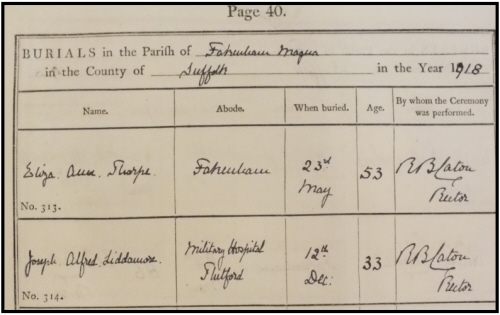 Page 40.
BURIALS in the Parish of Fakenham Magna
in the County of Suffolk in the Year 1918
Name. Abode. When buried. Age. By whom the Ceremony was performed.
Eliza Ann Thorpe. Fakenham 23rd May 53 R B Caton Rector
No. 313.
Joseph Alfred Liddamore. Military Hospital Thetford 12th Dec: 33 R B Caton Rector
No. 314.